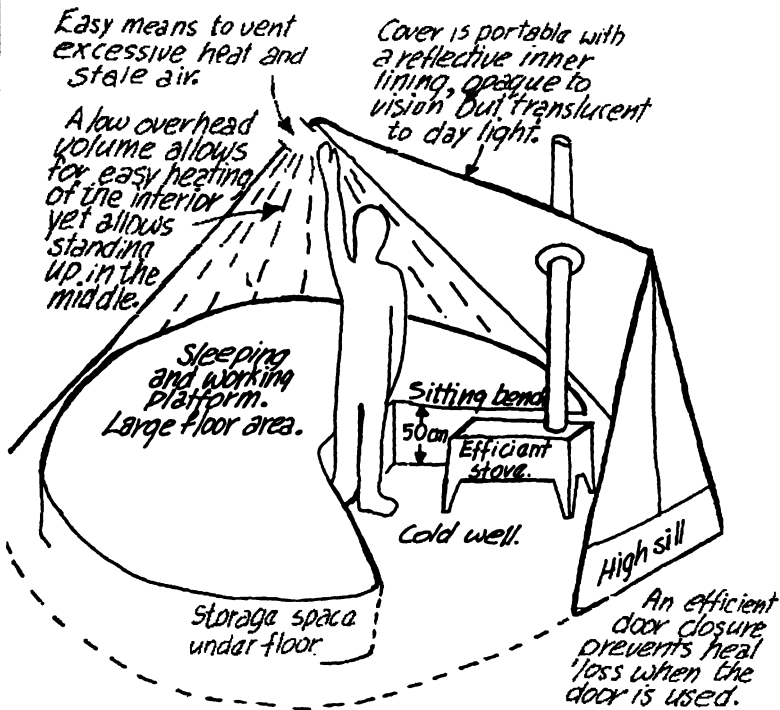 Easy means to vent
excessive heat and
stale air.
Cover is portable with
a reflective inner
lining, opaque to
vision but translucent
to day light.
A low overhead
volume allows
for easy heating
of the interior
yet allows
standing
up in the
middle.
Sleeping
and working
platform.
Large floor area.
Sitting bench
50cm
Efficient
stove.
Cold well.
High sill
Storage space
under floor
An efficient
door closure
prevents heal
loss when the
door is used.